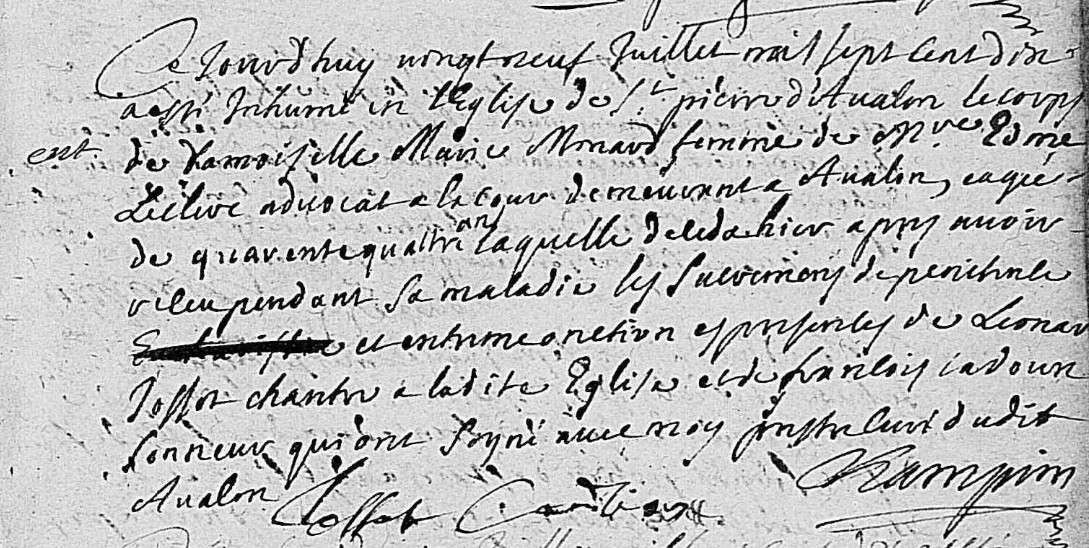 Ce Jourd'huy vingt neuf Juillet mil sept cent dix
a esté Inhumé en l'Eglise de St pierre d'Avalon le corps
ent. de damoiselle Marie Minard femme de Mre Edmé
advocat a la cour demeurant a Avalon, eagée
de quarente quattre ans laquelle deceda hier apres avoir
receu pendant sa maladie les sacremens de penitence
et extreme onction es presences de Leonar
Jossot chantre a ladite Eglise et de francois
sonneur qui ont signé avec moy prestre curé dudit
Avalon Jossot Champion